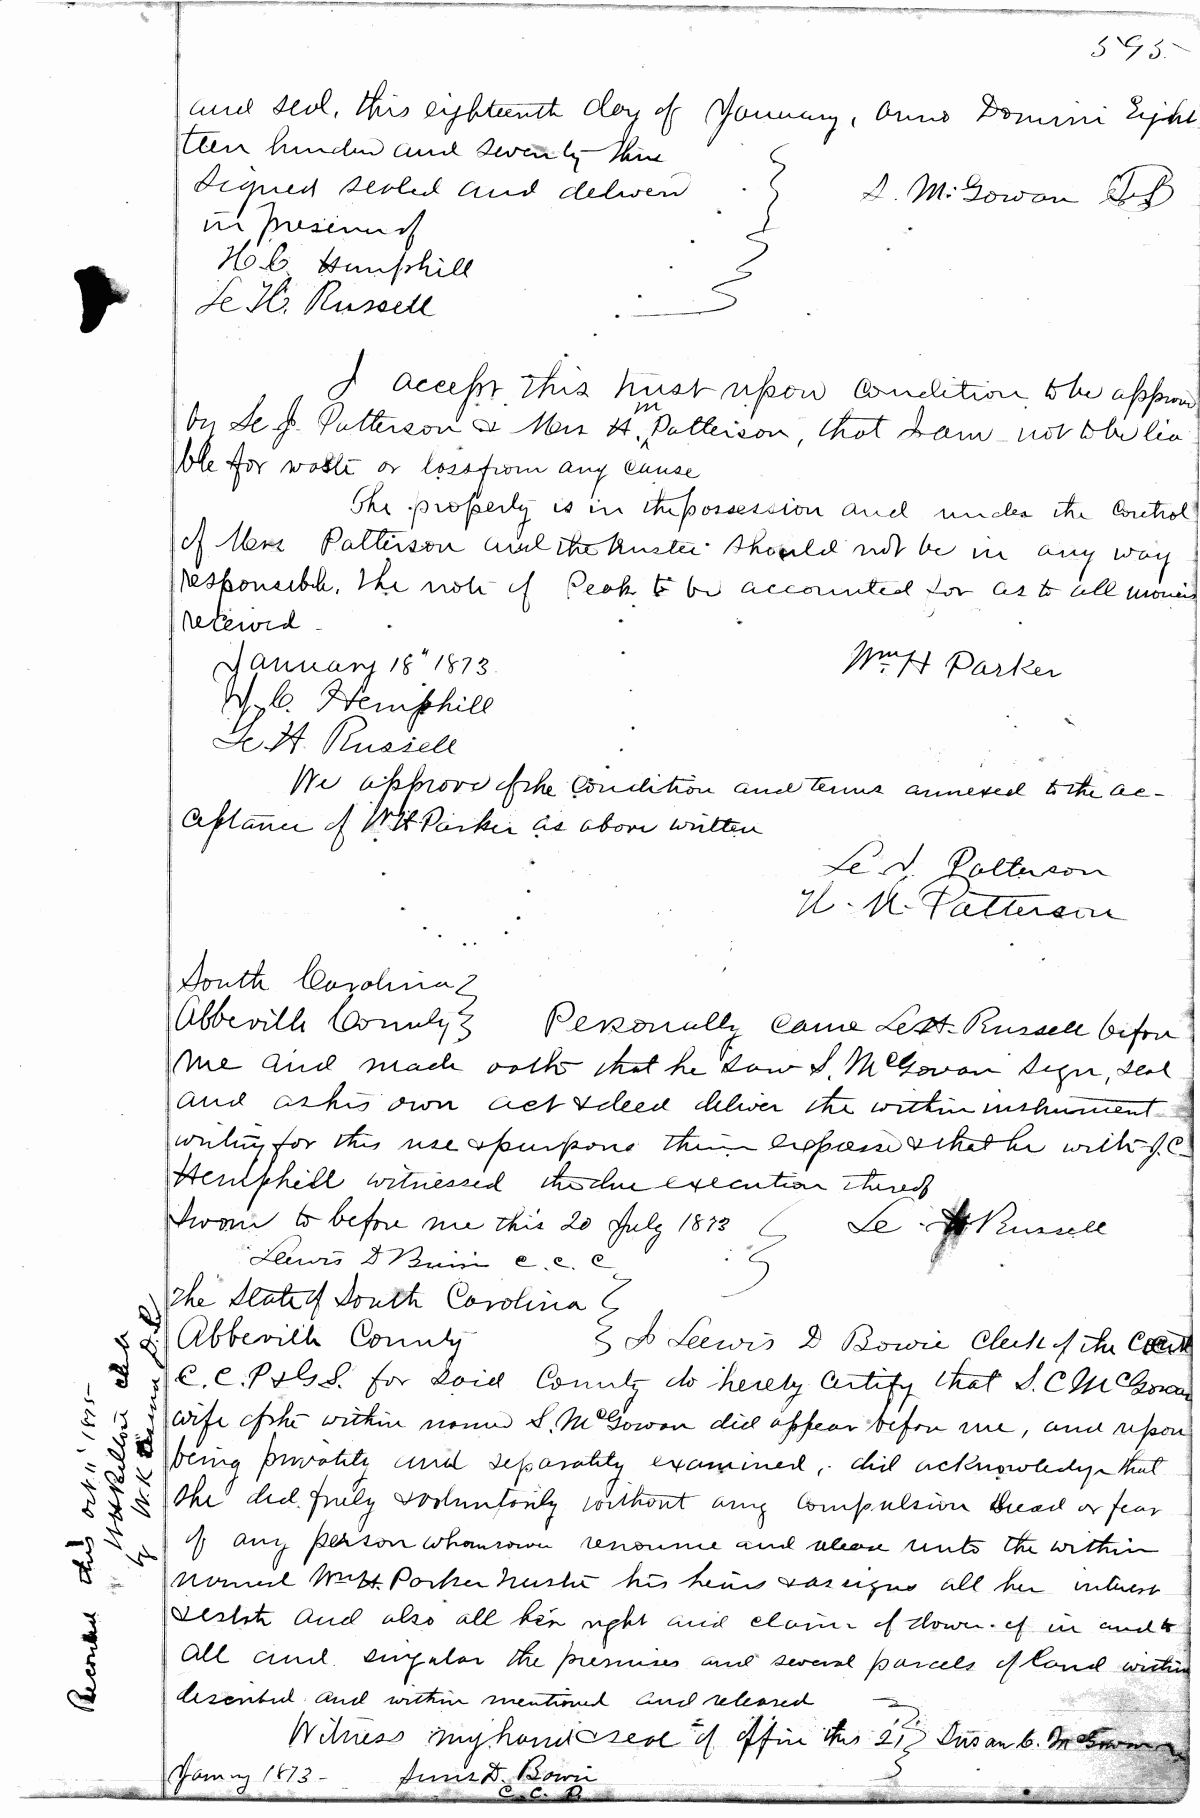 595
and seal, this eighteenth day of January, anno Domini Eigh
teen hundred and seventy three
Signed sealed and deliverd
in presence of
S. McGowan
H. C. Hemphill
Le H. Russell
I accept this trust upon condition to be approvd
by Le J. Patterson & Mrs H. M Patterson, that I am not to be lia
ble for waste or loss from any cause
The property is in the possession and under the control
of Mrs Patterson and the trustee should not be in any way
responsible. The note of Peak to be accounted for as to all monies
received
January 18" 1873
Wm H Parker
H. C. Hemphill
Le H. Russell
We approve of the condition and terms annexed to the ac-
ceptance of W H Parker as above written
Le J. Patterson
H. M. Patterson
South Carolina
Abbeville County Personally came Le H. Russell before
me and made oath that he saw S. McGowan sign, seal
and as his own act & deed deliver the within instrument
writing for this use & purpose therein expressed & that he with J. C.
Hemphill witnessed the due execution thereof
Sworn to before me this 20 July 1873 Le H Russell
Leewis D Bowie C. C. C
The State of South Carolina
Abbeville County I Leewis D Bowie Clerk of the Court
C. C. P & G. S. for said County do hereby certify that S. C McGowan
wife of the within named S. McGowan did appear before me, and upon
being privately and separately examined, did acknowledge that
she did freely & voluntarily without any compulsion dread or fear
of any person whomsoever renounce and release unto the within
named Wm H. Parker trustee his heirs & assigns all her interest
& estate and also all her right and claim of dower of in and to
all and singular the premises and several parcels of land within
described and within mentioned and released
Witness my hand & seal of office this 21 Susan C. McGowan
January 1873 - D. Bowie
C. C. P.
Recorded this oct 11" 1875
by W. K